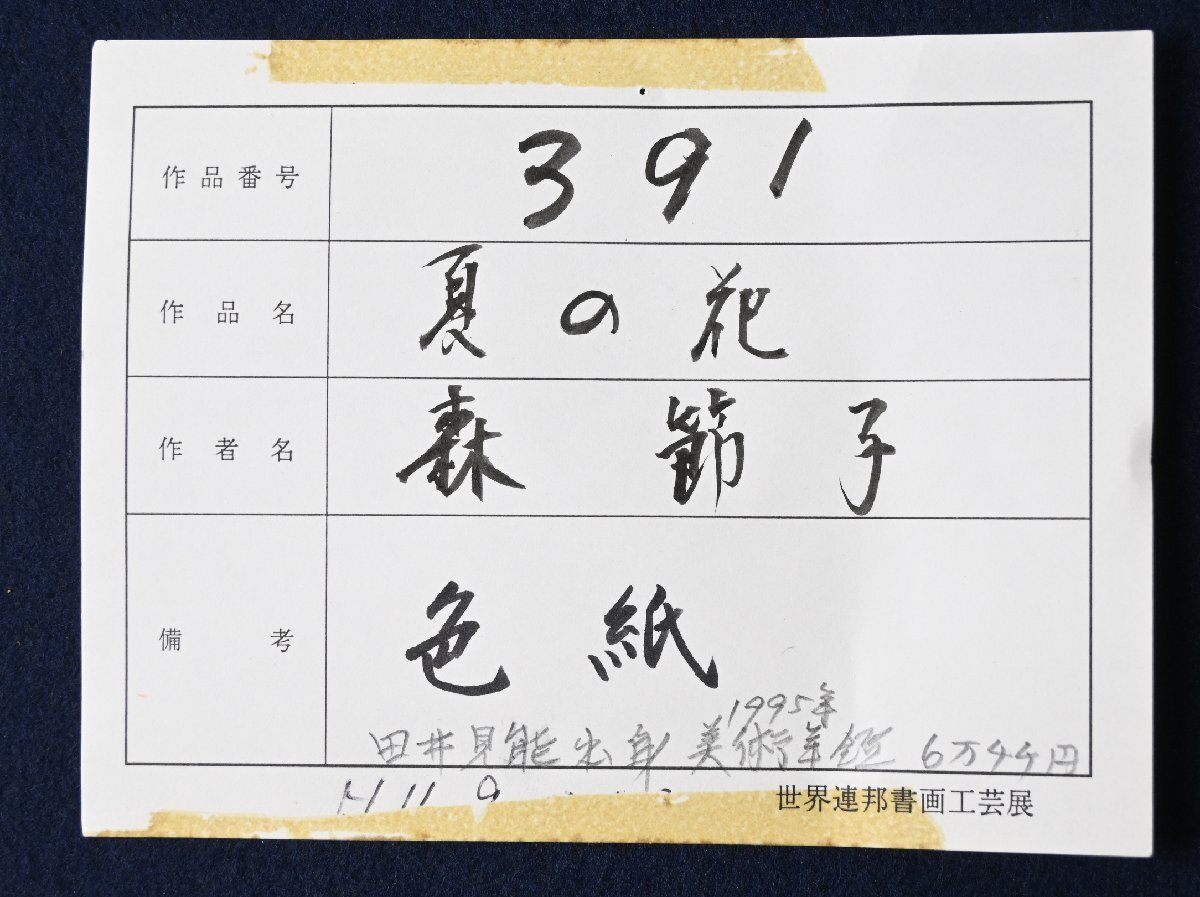 作品番号 391
作品名 夏の花
作者名 森節子
備考 色紙
1995年
田井見能出身 美術年鑑 6万4千円
H11 9
世界連邦書画工芸展